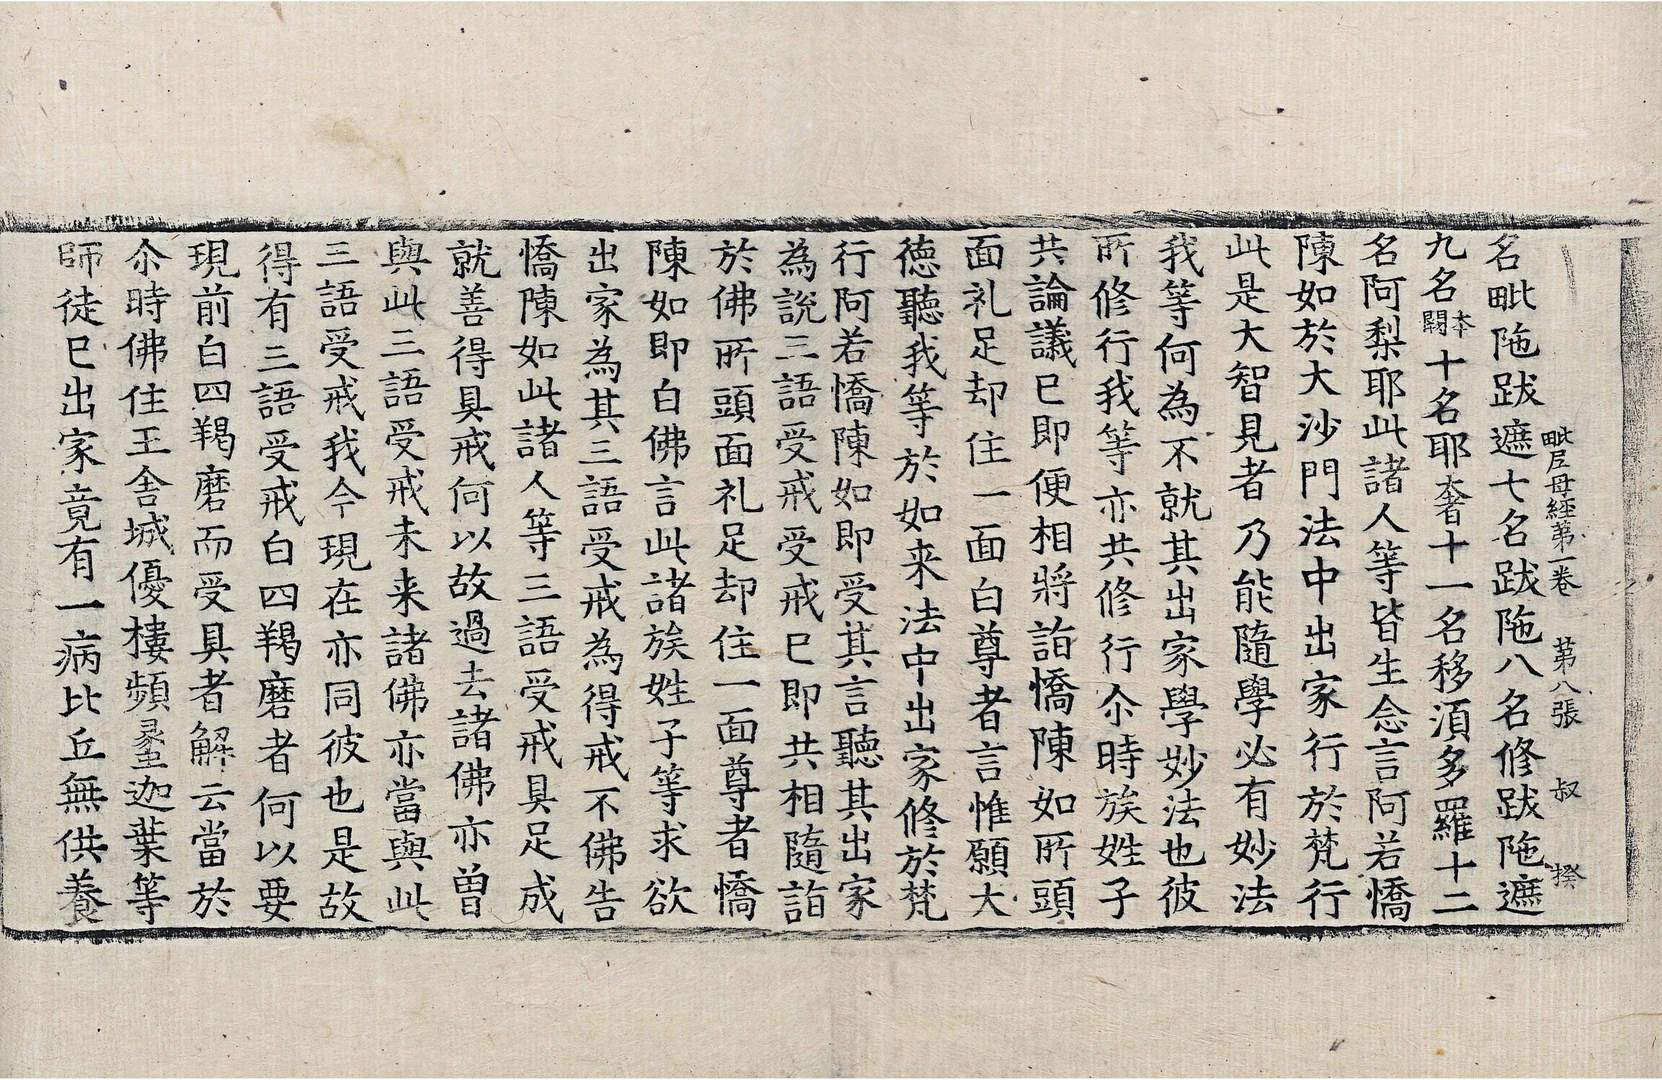 毗尼母経第一巻　第八張　叔　揆
名毗陁跋遮七名跋陁八名修跋陁遮
九名本闕十名耶奢十一名移湏多羅十二
名阿梨耶此諸人等皆生念言阿若憍
陳如於大沙門法中出家行於梵行
此是大智見者乃能隨學必有妙法
我等何為不就其出家學妙法也彼
所修行我等亦共修行尒時族姓子
共論議已即便相將詣憍陳如所頭
面礼足却住一面白尊者言惟願大
徳聽我等於如来法中出家修於梵
行阿若憍陳如即受其言聽其出家
為説三語受戒受戒已即共相隨詣
於佛所頭面礼足却住一面尊者憍
陳如即白佛言此諸族姓子等求欲
出家為其三語受戒為得戒不佛告
憍陳如此諸人等三語受戒具足成
就善得具戒何以故過去諸佛亦曽
與此三語受戒未来諸佛亦當與此
三語受戒我今現在亦同彼也是故
得有三語受戒白四羯磨者何以要
現前白四羯磨而受具者解云當於
尒時佛住王舎城優樓頻䗍迦葉等
師徒已出家竟有一病比丘無供養